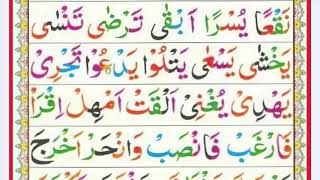 نَقْعًا يُسْرًا اَبْقٰى تَرْضٰى تَنْسٰى
يَخْشٰى يَسْعٰى يَتْلُوْا يَدْعُوْا تَجْرِىْ
يَهْدِىْ يُغْنِىْ اَلْقَتْ اَمْهِلْ اِقْرَاْ
فَارْغَبْ فَانْصَبْ وَانْحَرْ اَخْرَجَ